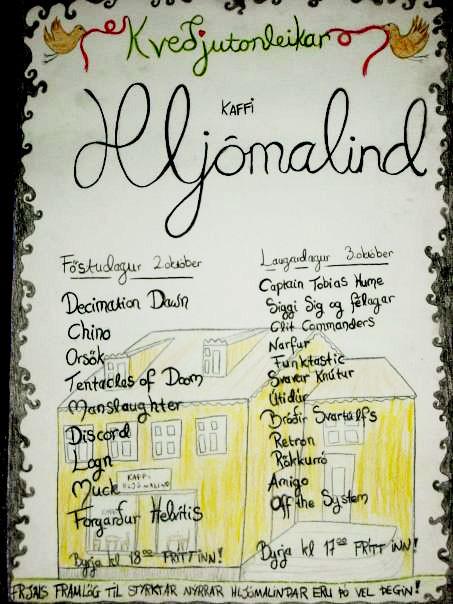 Kveðjutónleikar
KAFFI
Hljómalind
Föstudagur 2.október
Decimation Dawn
Chino
Orsök
Tentacles of Doom
Manslaughter
Discord
Logn
Muck
Forgarður Helvítis
Byrja kl 18⁰⁰ FRÍTT INN!
Laugardagur 3.október
Captain Tobias Hume
Siggi Sig og félagar
Clit Commanders
Narfur
Funktastic
Svavar Knútur
Útidúr
Bróðir Svartúlfs
Retrön
Rökkurró
Amigo
Off the System
Byrja kl 17⁰⁰ FRÍTT INN!
KAFFI
HLJÓMALIND
FRJÁLS FRAMLÖG TIL STYRKTAR NÝRRAR HLJÓMALINDAR ERU ÞÓ VEL ÞEGIN!